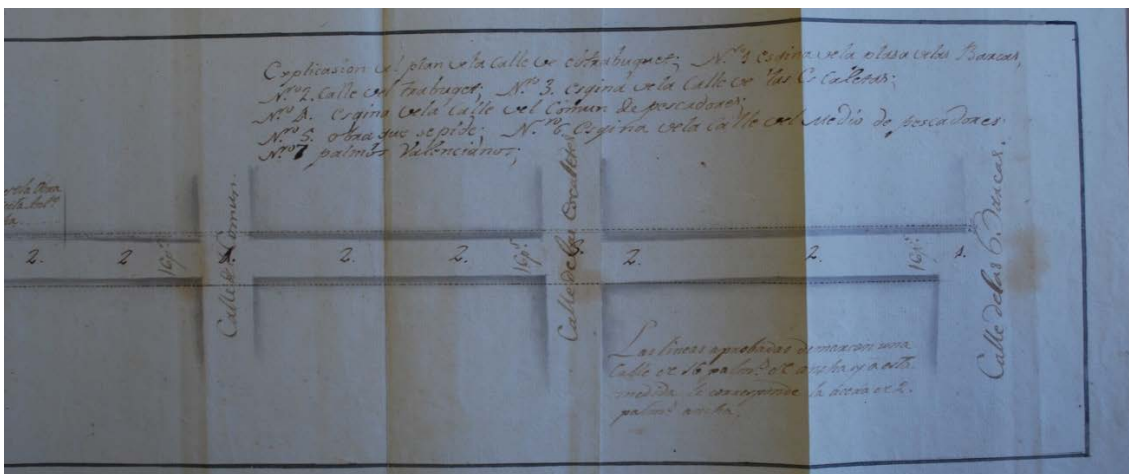 Explicasion del plan de la Calle de estrabuquet; N.ro 1 esgina de la plasa de las Barcas,
N.ro 2. Calle del trabuquet; N.ro 3. esgina de la Calle de las Escaletas;
N.ro 4. esgina de la Calle del Comun de pescadores;
N.ro 5. obra que se pide; N.ro 6. esgina de la calle del Medio de pescadores
N.ro 7 palmos Valencianos;
de la Obra
2.
2
16 p.s
Calle del Comun.
2.
2.
16 p.s
Calle de las Escaletes
2.
2.
16 p.s
1.
Calle de las Barcas.
Las lineas aprobadas demarcan una
Calle de 16 palm.s de ancha y a esta
medida le corresponde la acera de 2.
palm.s ancha.